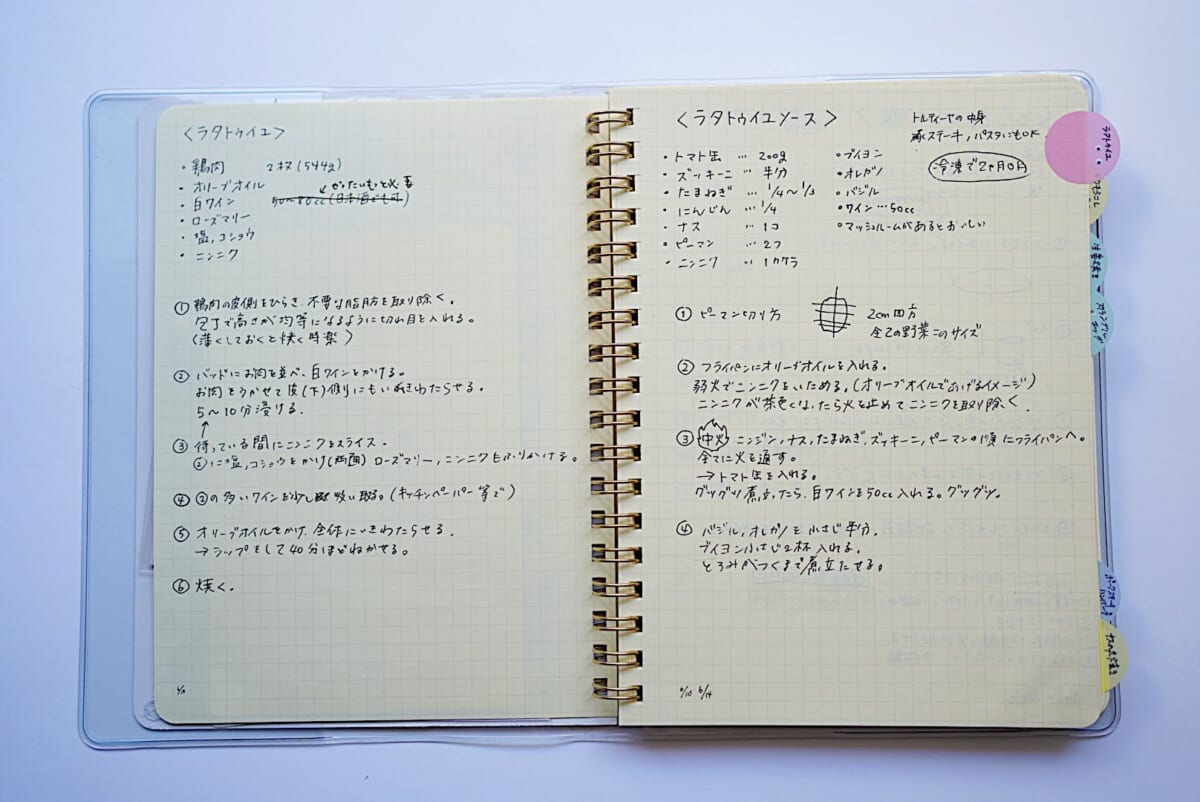 〈ラタトゥイユ〉
・鶏肉 2枚(544g)
・オリーブオイル
・白ワイン 50〜80cc(日本酒でも可)
・ローズマリー
・塩,コショウ
・ニンニク
① 鶏肉の皮側をひらき、不要な脂肪を取り除く。
包丁で高さが均等になるように切れ目を入れる。
(薄くしておくと焼く時楽)
② バッドにお肉を並べ、白ワインをかける。
お肉をうかせて皮(下)側にもいきわたらせる。
5〜10分浸ける.
↑
③ 待っている間にニンニクをスライス.
②に塩,コショウをかけ(両面) ローズマリー,ニンニクもふりかける。
④ ②の多いワインを少し吸い取る。(キッチンペーパー等で)
⑤ オリーブオイルをかけ、全体にいきわたらせる.
→ラップをして40分ほどねかせる。
⑥ 焼く.
〈ラタトゥイユソース〉
トルティーヤの中身
豚ステーキ,パスタにもOK
冷凍で2ヶ月OK
・トマト缶 … 200g
・ズッキーニ … 半分
・たまねぎ … 1/4〜1/3
・にんじん … 1/4
・ナス … 1コ
・ピーマン … 2つ
・ニンニク … 1カケラ
・ブイヨン
・オレガノ
・バジル
・ワイン…50cc
・マッシュルームがあるとおいしい
① ピーマン切り方
2cm四方
全ての野菜このサイズ
② フライパンにオリーブオイルを入れる.
弱火でニンニクをいためる。(オリーブオイルであげるイメージ)
ニンニクが茶色くなったら火を止めてニンニクを取り除く.
③ 中火 ニンジン,ナス,たまねぎ,ズッキーニ,ピーマンの順にフライパンへ。
全てに火を通す。
→トマト缶を入れる.
グツグツ煮立ったら、白ワインを50cc入れる。グツグツ.
④ バジル,オレガノを小さじ半分.
ブイヨン小さじ2杯入れる.
とろみがつくまで煮立たせる。
6/10 6/14
ラタトゥイユ